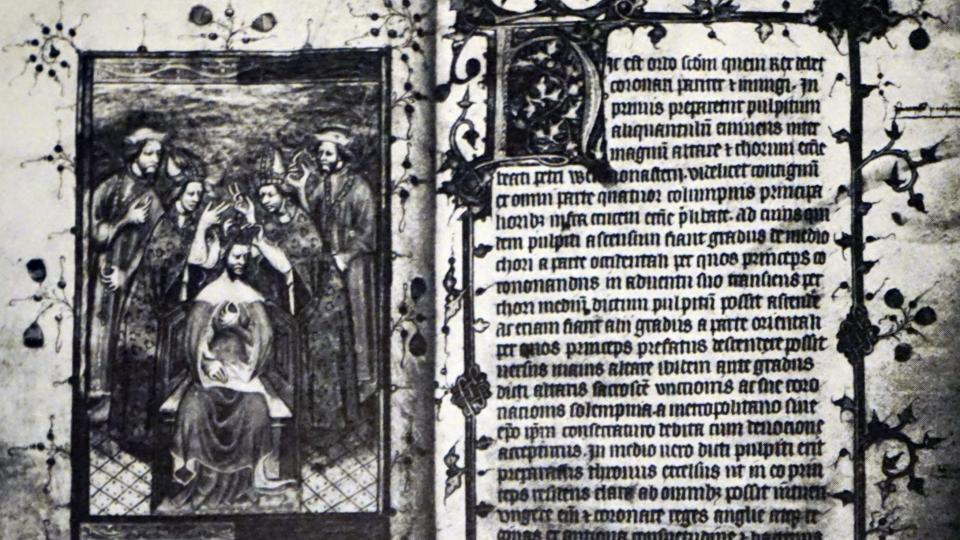 Hic est ordo scdm quem Rex debet
coronari pariter ⁊ inungi. In
primis preparetur pulpitum
aliquantulū eminens inter
magnū altare ⁊ chorum ecc̄e
beati petri videlicet contiguū
ex omni parte quatuor columpnis principa
lioribꝫ infra crucem ecc̄e p̄libate. ad cuius qui
dem pulpiti ascensum fiant gradus de medio
chori a parte occidentali per quos princeps co
ronandus in aduentu suo transiens per
chori mediū dictum pulpitū possit ascende
ac etiam fiant alii gradus a parte orientali
per quos princeps prefatus descendere possit
versus maius altare ibidem ante gradus
dicti altaris vnctionis ac sue coro
nationis solempnia a metropolitano siue
ep̄o ip̄m consecraturo debita cum deuocione
accepturus. In medio uero dicti pulpiti erit
preparatus thronus excelsus ut in eo prin
ceps residens clare ab omnibꝫ possit intueri
vngere ⁊ coronare reges anglie
antiqua consuetudine ⁊